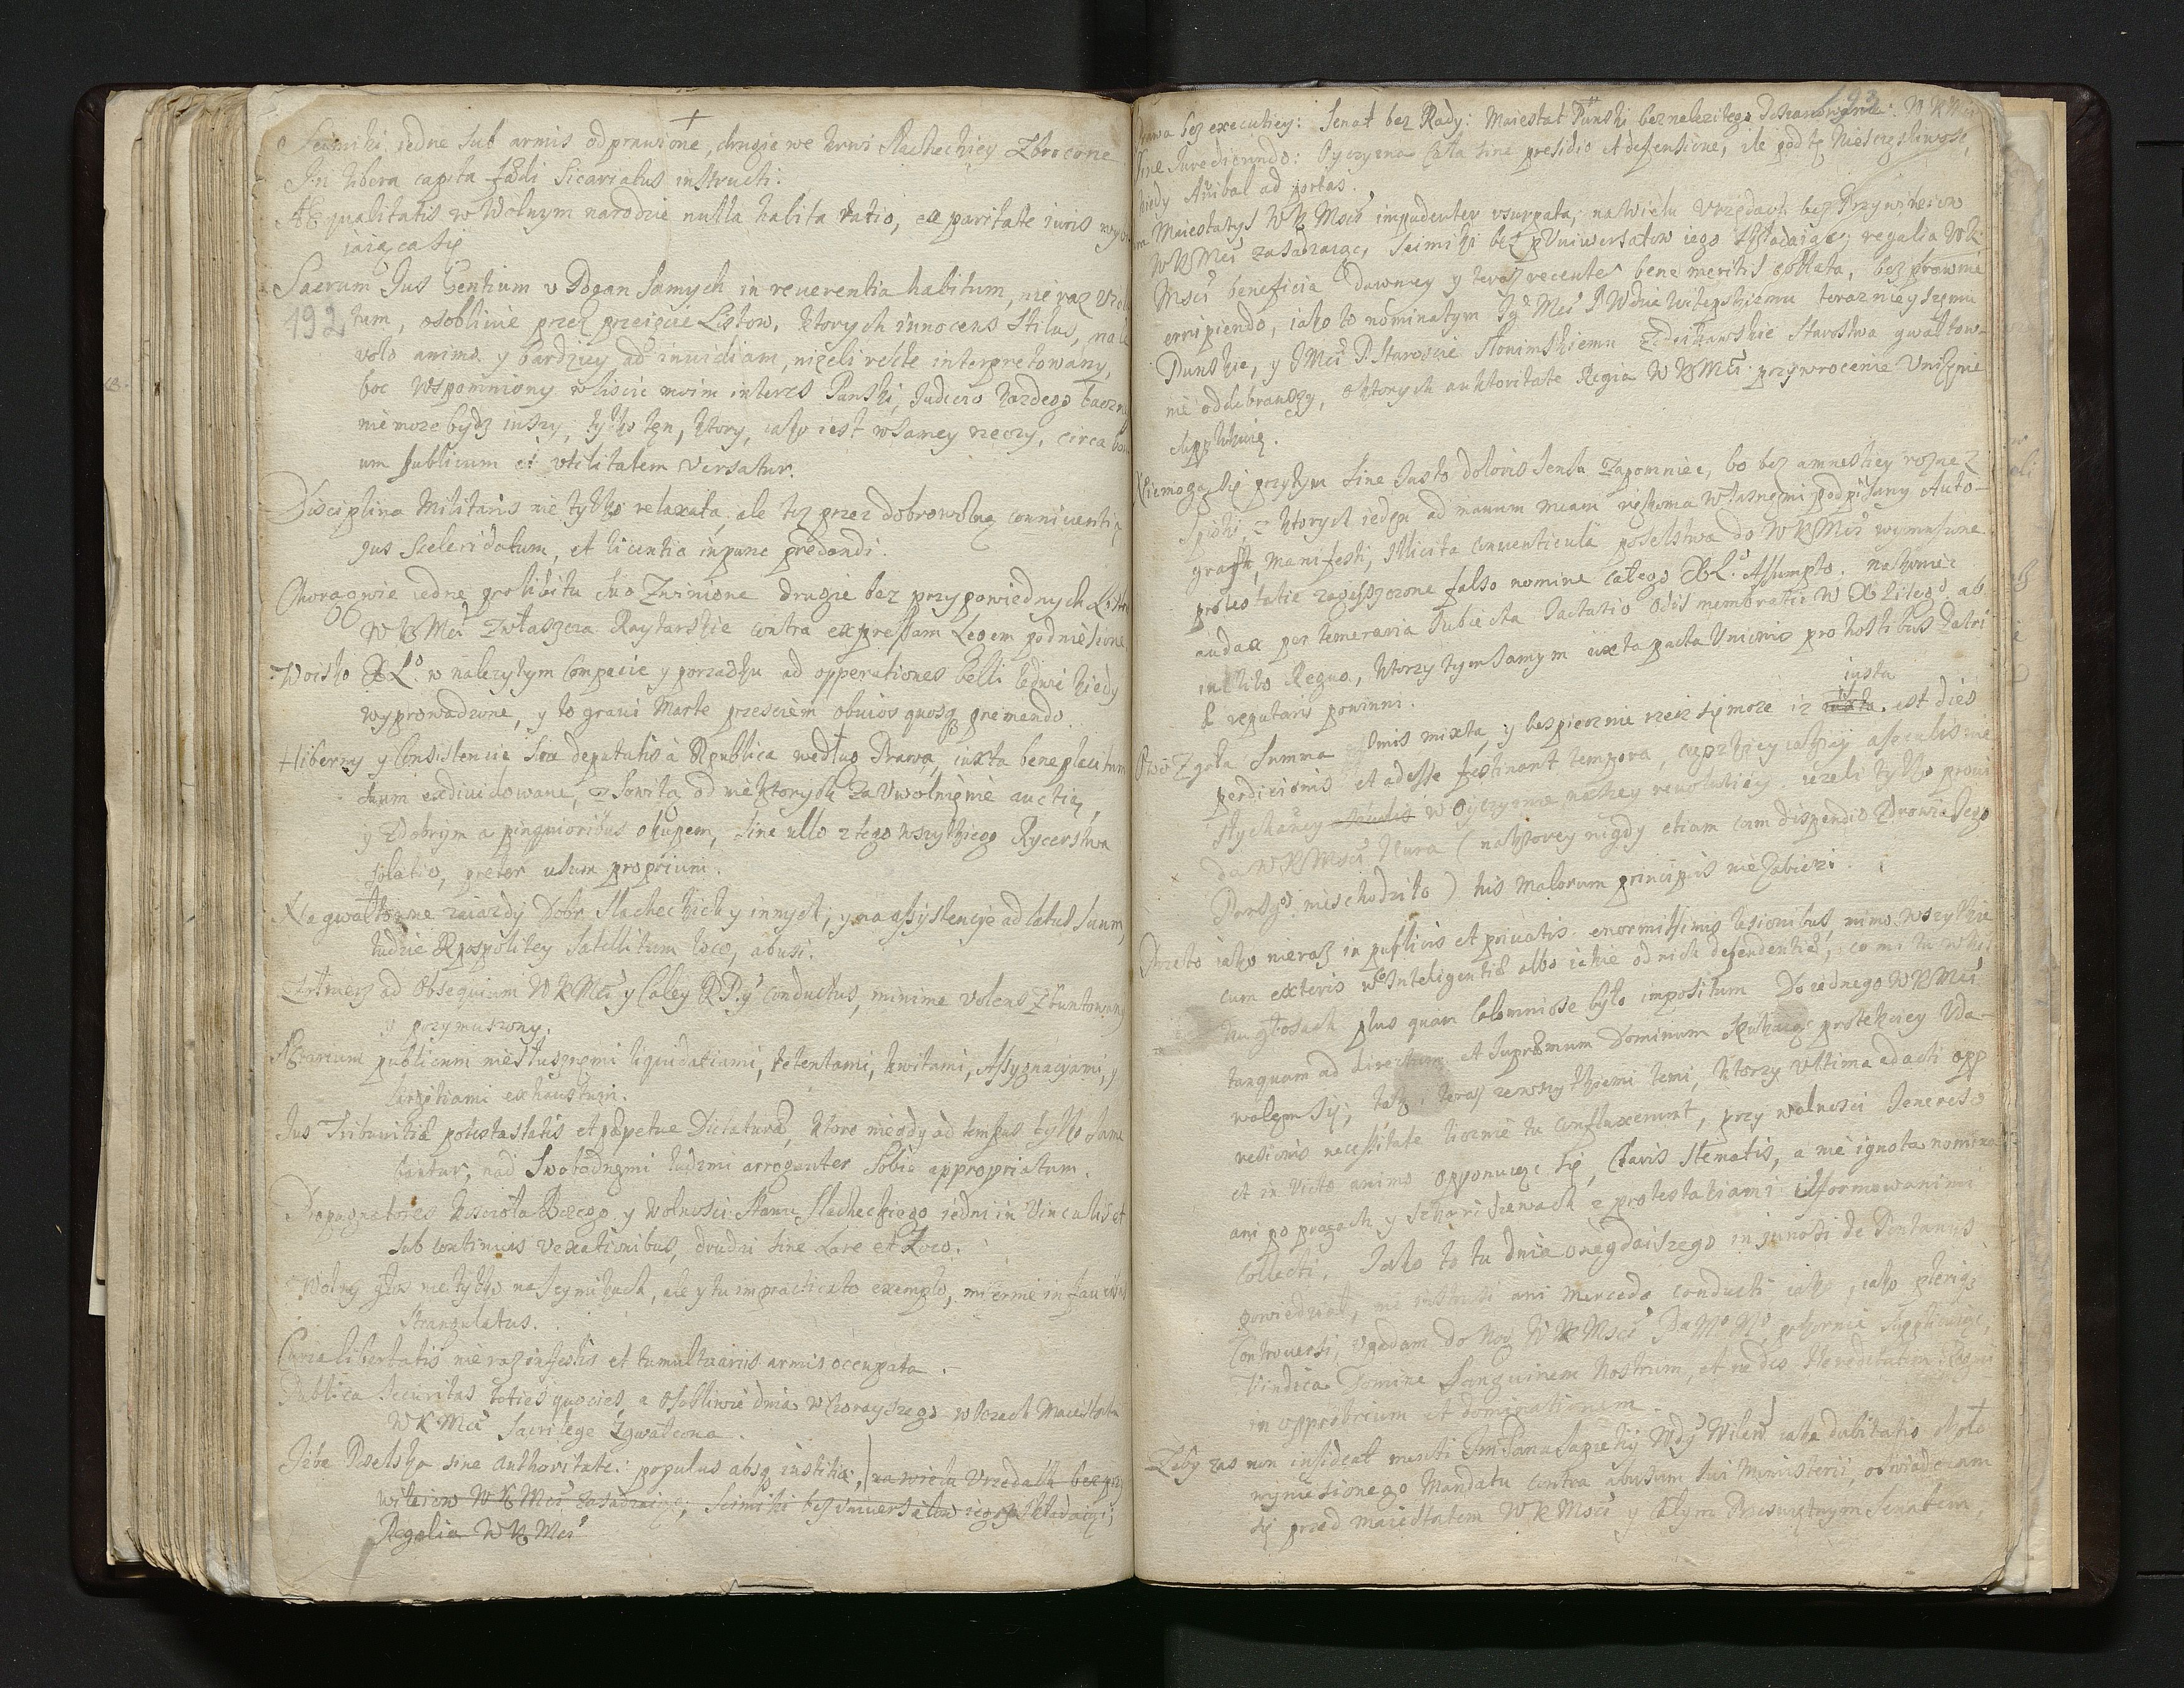 +
Seimiki, iedne sub armis odprawione, drugie we krwi slacheckiey zbroczone
In libera capita sicariatus instructi.
AEqualitatis w Wolnym narodzie nulla habita ratio, ex paritate iuris
iaiąca się
Sacrum Jus Gentium v Pogan samych in reuerentia habitum, nie raz
192
tum, osobliwie przez przeięcie Listow, ktorych innocens stilus,
volo animo y bardziey ad inuidiam, niżeli recte interpretowany,
boc Wspomniony w liscie moim interes Panski, Iudicio kazdego
nie moze bydz inszy, tylko ten, ktory, iako iest w samey rzeczy, circa
um publicum et vtilitatem versatur.
Disciplina Militaris nie tylko relaxata, ale tez przez dobrowolną conniuentią
ius sceleri datum, et licentia inpune prędandi.
Choragwie iedne pro libitu suo Zwinione drugie bez przypowiednych
W K Mci zwłaszcza Raytarskie contra expressam Legem podniesione
Woisko X L. w nalezytym compucie y porzadku ad opperationes belli ledwie kiedy
wyprowadzone, y to graui Marte przesciem obuios quosq premendo.
Hiberny y Consistencie sua deputatis à Republica według Prawa, iuxta beneplacitum
suum exdiuidowane, z sowitą od niektorych za Vwolnienie auctią,
y Zdobrym a pinguioribus okupem, sine ullo z tego wszytkiego Rycerstwa
solatio, preter usum proprium.
Na gwałtowne zaiazdy Dobr slacheckich y innych, y na assystencie ad latus suum,
ludzie Rpospolitey satellitum loco, abusi.
Zołnierz ad Obsequium W K Mci y Caley R P. conductus, minime volens zbuntowany
y przymuszony.
AErarium publicum niesłusznymi liquidatiami, retentami, kwitami, Assygnacyami, y
largitiami exhaustum.
Jus Tribunitiae potestatis et ppetue Dictaturae, ktore niegdy ad tempus tylko
bantur, nad swobodnymi ludzmi arroganter sobie appropriatum.
Propugnatores Kosciola Bozego y Wolnosci Stanu slacheckiego iedni in Vinculis et
sub continuis vexationibus, drudzi sine Lare et Loco.
Wolny głos nie tylko na seymikach, ale y tu impracticato exemplo, in faucibus
strangulatus.
Curia libertatis nie raz infestis et tumultuariis armis occupata.
Publica securitas toties quocies, a osobliwie dnia wczorayszego w oczach Maiestatu
W K Mci sacrilege zgwałcona.
Izba Poselska sine Authoritate: populus absq iustitia: na wielu Vrzędach bez przy
wileiow W K Mci zasadzaiąc; seimiki bez vniuersałow iego składaiąc;
Regalia W K Mci
193
Prawa bez executiey: Senat bez Rady: Maiestat Panski bez nalezitego Poszanowania: W K Mci
Sine Iurediurando: Oyczyzna Cała sine presidio et defensione, ile pod tę Niesczęsliwosc,
kiedy Annibal ad portas.
Maiestatis W K Msci impudenter vsurpata, na Wielu Vrzędach bez Przywileiow
W K Mci zasadzaiąc, seimiki bez Vniwersałow iego składaiąc; regalia W K
Msci beneficia dawniey y teraz recenter bene meritis collata, bez prawnie
erripiendo, iako to nominatym Je Mci P Wdzie Witepskiemu teraznieyszemu
Dunskie, y J Mci P. Staroscie Słonimskiemu Starostwa gwałtow-
nie oddebrawszy, o ktorych auktoritate Regia W K Mci przywrocenie Vniżenie
supplikuię.
Nie mogę się przytym sine iusto doloris sensu zapomniec, bo bez amnestiey rozne
spiski, z ktorych ieden ad manum meam rękoma własnymi podpisany Auto-
graft, manifesti, illicita conuenticula poselstwa do W K Mci wymuszone
protestatie zagęszczone falso nomine całego X L. Assumpto. nakoniec
audax per temeraria subiecta Iactatio odis membratio W X Litego ab
inclito Regno, ktorzy tym samym iuxta pacta Vnionis pro hostibus Patri
ę reputari powinni.
iusta
Owo zgoła summa mixta, y bespiecznie rzecz się może iz iuxta est dies
perdicionis et adesse festinant tempora, cięzkiey iakiey a seculis nie
słychaney w Oyczyznie naszey reuolutiey iezeli tylko proui
da W K Msci Cura (na ktorey nigdy etiam cum dispendio zdrowia sego
Panskgo nieschodziło) his malorum principiis nie zabieży.
Przeto iako nieraz in publicis et priuatis enormissimis lesionibus, mimo wszytkie
cum exteris Inteligentiae albo iakie od nich dependentiae, co mi tu w
głosach plus quam calomniose było impositum Do iednego W K Mci
tanquam ad directum et supremum Dominum szukaiąc protekciey Vda-
wałem się; tak teraz ze wszytkiemi temi, ktorzy vltima adacti opp
resionis necessitate licznie tu confluxerunt, przy wolnosci Generose
et in victo animo opponuięc się, Claris stematis, a nie ignota nomina
ani po progach y z protestatiami vformowanimi
Collecti, Iako to tu dnia onegdaiszego iniuriosi de Pontanus
powiedział, nie ani mercede conducti iako, iako plerięq
Controuersi, vpadam do Nog W K Msci Pa Mo Mo, pokornie supplikuiąc,
Vindica Domine Sanguinem Nostrum, et ne des Hereditatem Regni
in opprobrium et dominationem.
Zeby zas non insideat menti Im Pana Sapiehy Wdy Wilen iaka dubitatio około
wyniesionego Mandatu contra abusum sui Ministerii, oswiadczam
się przed maiestatem W K Msci y całym Przeswiętnym Senatem,